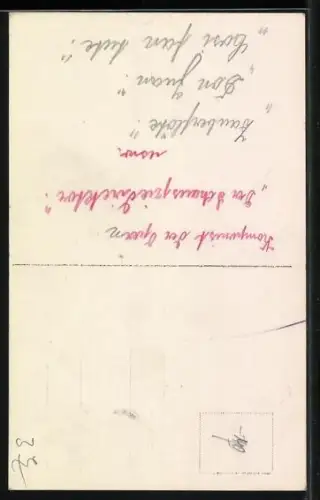 Komponist der Opern
„Der Schauspieldirektor".
usw.
„Zauberflöte".
„Don Juan".
„Cosi fan tute".